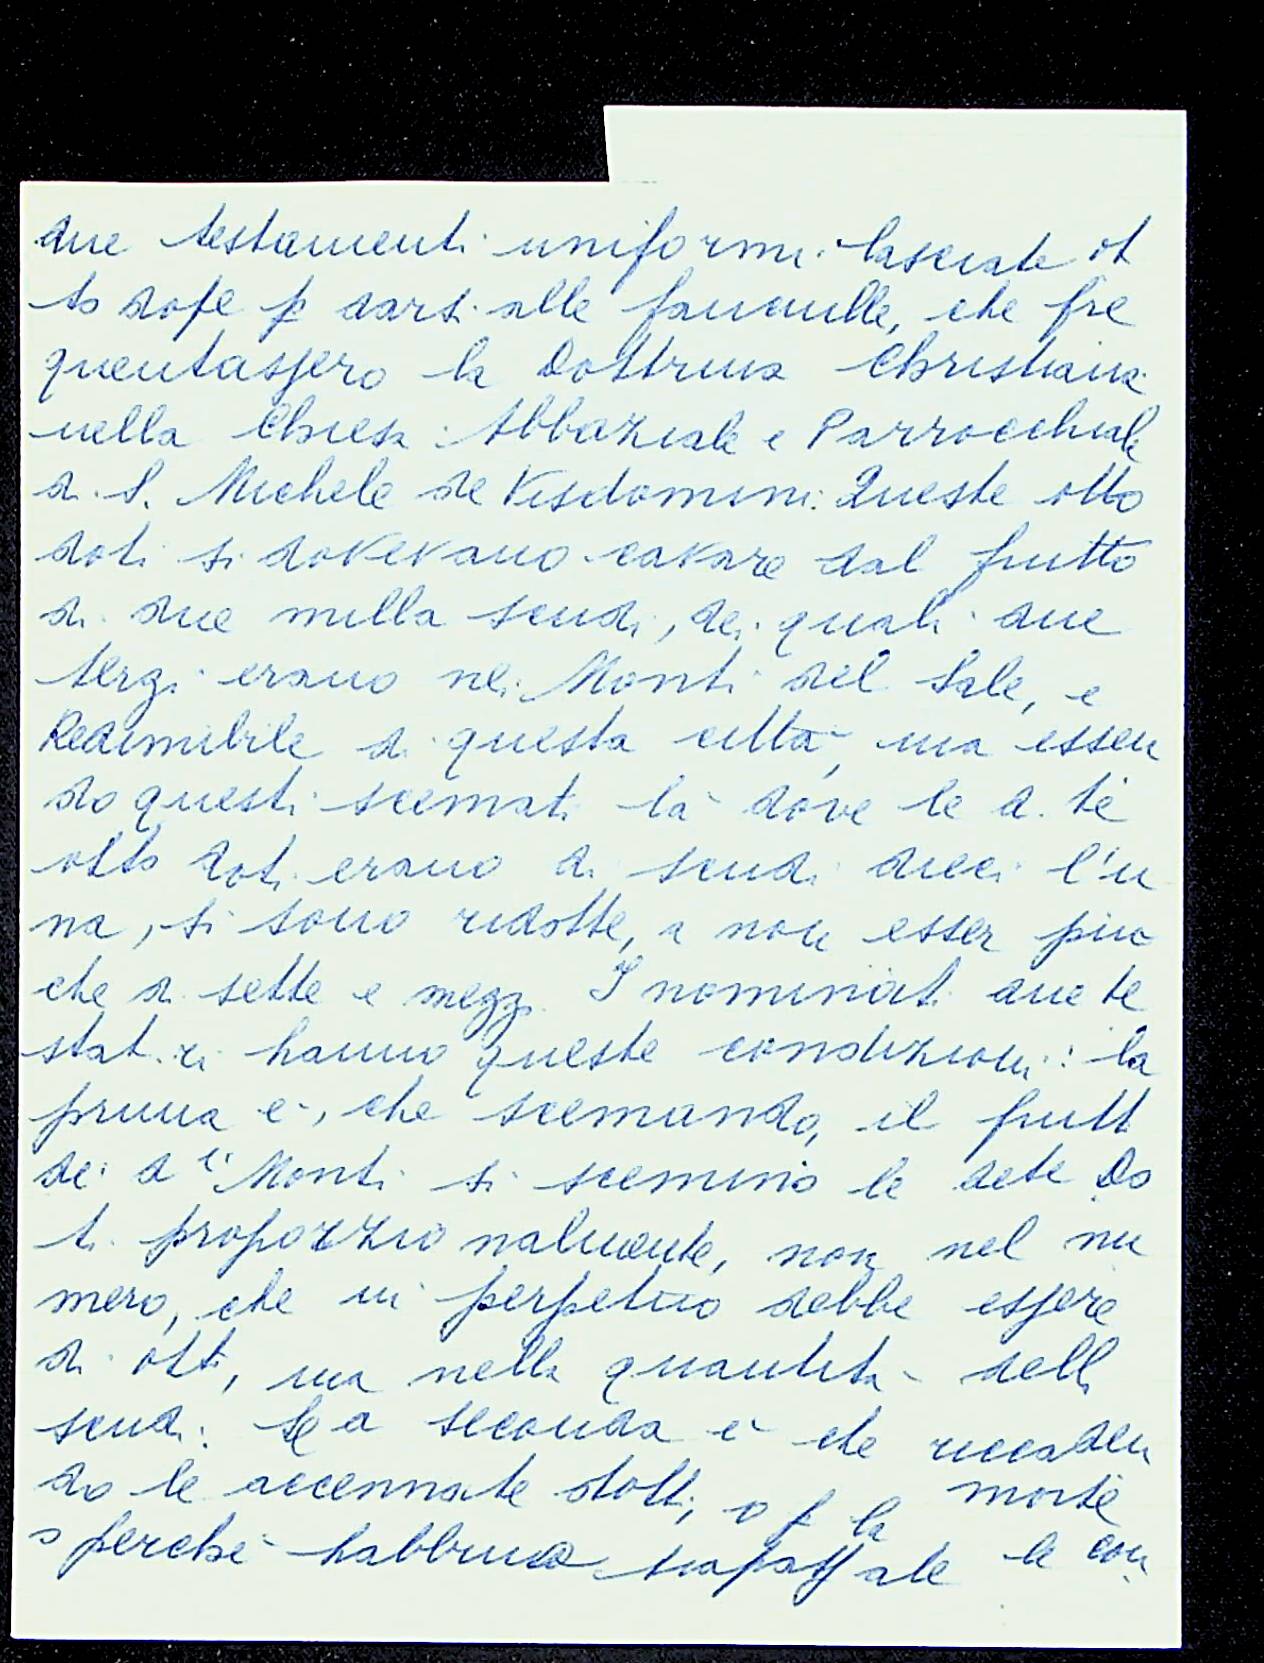 due testamenti uniformi lasciate ot
to dose p darsi alle fanciulle, che fre
quentassero la Dottrina Christiana
nella Chiesa Abbaziale e Parrocchiale
di S. Michele de Visdomini. Queste otto
doti si dovevano cavare dal frutto
di due milla scudi, dei quali due
terzi erano nei Monti del Sale, e
Redimibile di questa città, ma essen
do questi scemati là dove le d. te
otto doti erano di scudi dieci l'u
na, si sono ridotte, a non esser più
che di sette e mezzo. I nominati due te
stat.ri hanno queste condizioni: la
prima è, che scemando, il frutt
dei d.ti Monti si scemino le dete Do
ti proporzionalmente, non nel nu
mero, che in perpetuo debbe essere
di otto, ma nella quantità delli
scudi. La seconda è che riccaden
do le accennate doti, o p la morte
o perchè habbino trapassate le con